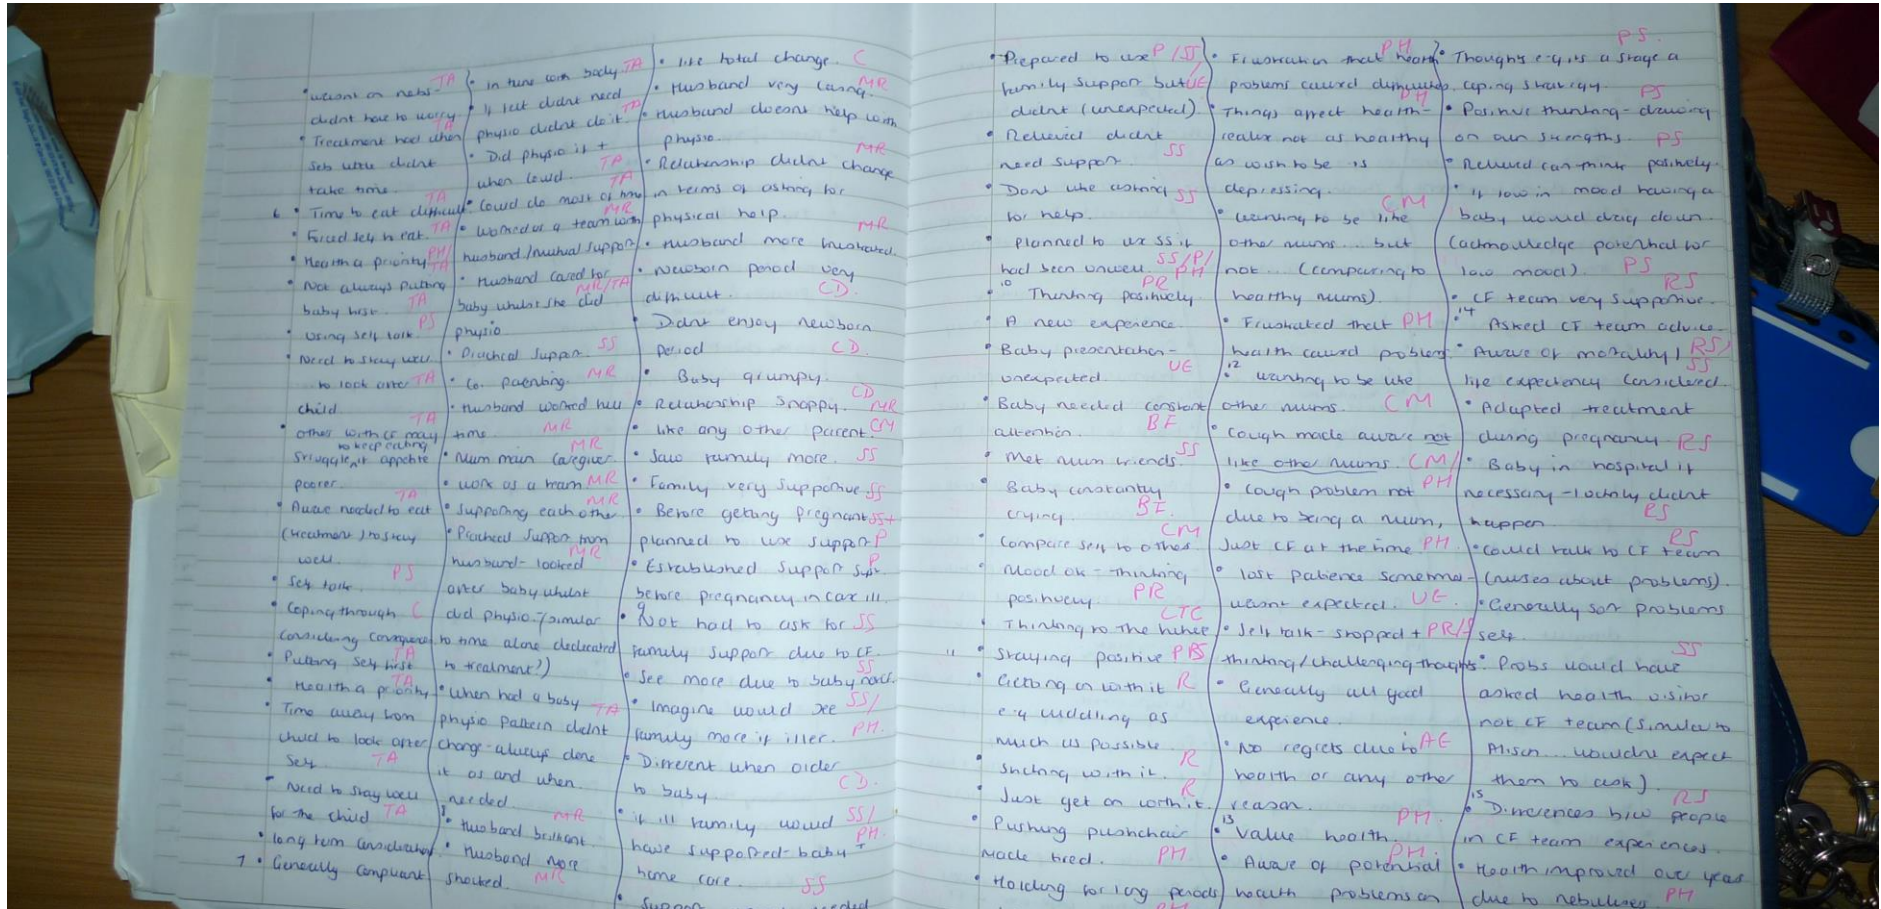 wasnt on nebs - TA
didnt have to worry. TA
• Treatment had when
seb were didnt
take time. TA
6 • Time to eat difficult. TA
• Forced self to eat. TA
• Health a priority PH/TA
• Not always putting
baby first. TA
• Using self talk. PS
• Need to stay well
to look after TA
child. TA
• others with CF may
struggle to keep eating if appetite
poorer. TA
• Aware needed to eat
(treatment) to stay
well.
• Self talk. PS
• Coping through C
considering
• Putting self first TA
Health a priority TA
• Time away from
child to look after
self. TA
• Need to stay well
for the child TA
• long term consideration
7 • Generally compliant
• in tune with body. TA
• if felt didnt need
physio didnt do it. TA
• Did physio if +
when could. TA
• Could do most of time TA
• worked as a team with MR
husband/mutual support
• Husband cared for
baby whilst she did MR/TA
physio
• Practical support. SS
• Co. parenting. MR
• Husband worked full
time. MR
• Mum main caregiver MR
• work as a team MR
• Supporting each other MR
• Practical support from
husband - looked MR
after baby whilst
did physio. (similar
to time alone dedicated
to treatment?)
• When had a baby TA
physio pattern didnt
change - always done
it as and when
needed.
• Husband brilliant. MR
• Husband more
shocked. MR
• like total change. C
• Husband very caring. MR
• Husband doesnt help with
physio.
• Relationship didnt change MR
in terms of asking for
physical help.
• Husband more frustrated. MR
• Newborn period very
difficult. CD.
• Didnt enjoy newborn
period CD.
• Baby grumpy. CD
• Relationship snappy. MR
• like any other parent. CM
• Saw family more. SS
• Family very supportive SS
• Before getting pregnant SS+
planned to use support P
• Established support P
before pregnancy in case ill.
9
• Not had to ask for SS
family support due to CF.
• See more due to baby SS
• Imagine would see SS/
family more if iller. PH.
• Different when older
to baby CD.
• if ill family would SS/
have supported - baby + PH.
home care. SS
• Support
• Prepared to use P/SS/
family support but UE
didnt (unexpected)
• Relieved didnt
need support. SS
• Dont like asking SS
for help.
• planned to use SS if
had been unwell. SS/P/PH
10 • Thinking positively. PR
• A new experience.
• Baby presentation -
unexpected UE
• Baby needed constant
attention. BF
• Met mum friends. SS
• Baby constantly
crying. BF.
• Compare self to others CM
• Mood ok - thinking
positively. PR
• Thinking to the future LTC
11 • Staying positive
• Getting on with it R
e.g cuddling as
much as possible.
• Sticking with it. R
• Just get on with it. R
• Pushing pushchair
made tired. PH
• Holding for long periods
PH
• Frustration that health PH
problems caused
• Things affect health - PH
realise not as healthy
as wish to be is
depressing.
• Wanting to be like CM
other mums.... but
not... (comparing to
healthy mums).
• Frustrated that PH
health caused problems
12 • Wanting to be like
other mums. CM
• Cough made aware not
like other mums. CM/
• Cough problem not PH
due to being a mum,
just CF at the time PH.
• lost patience sometimes -
wasnt expected. UE.
• Self talk - stopped +
thinking/challenging thoughts
• Generally all good
experience.
• No regrets due to AE
health or any other
reason.
13 • Value health. PH.
• Aware of potential PH.
health problems on
PS.
• Thoughts e.g its a stage a
coping strategy.
• Positive thinking - drawing PS
on own strengths.
• Relieved can think positively. PS
• if low in mood having a
baby would drag down.
(acknowledge potential for
low mood). PS
• CF team very supportive. RS
14 • Asked CF team advice.
• Aware of mortality/ RS/
life expectency considered. SS
• Adapted treatment
during pregnancy RS
• Baby in hospital if
necessary - luckily didnt
happen. RS
• Could talk to CF team RS
(nurses about problems).
• Generally sort problems
self.
• Probs would have SS
asked health visitor
not CF team (similar to
Alison.... wouldnt expect
them to ask).
15 • Differences b/w people RS
in CF team experiences.
• Health improved over years
due to nebulisers PH